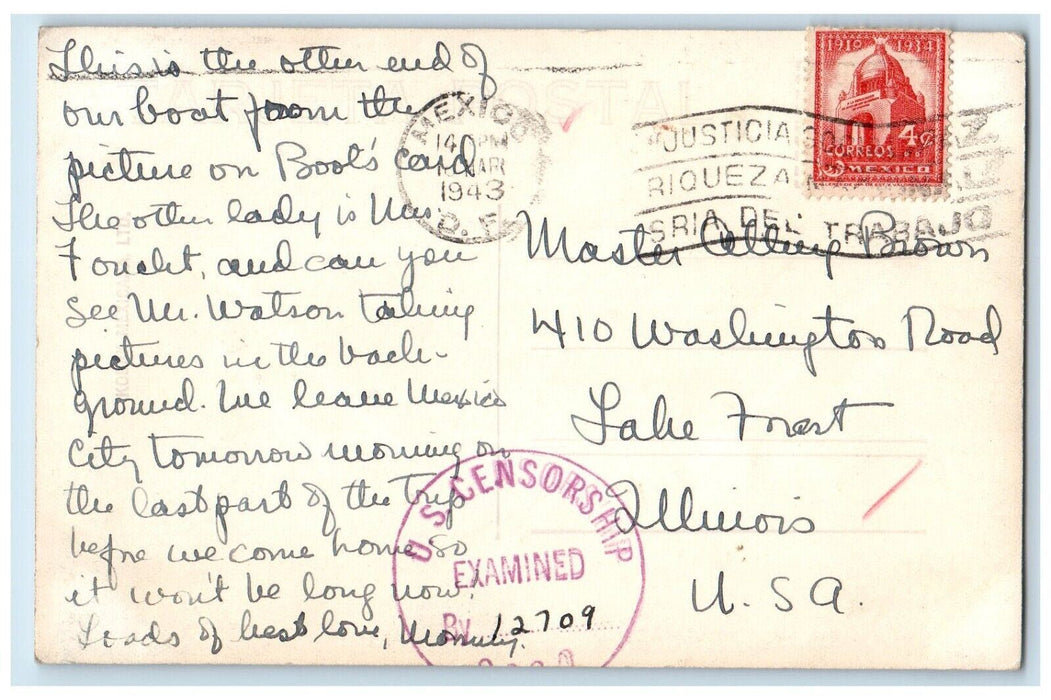 This is the other end of
our boat from the
picture on Boot's card
The other lady is Mrs.
and can you
see Mr. Watson taking
pictures in the back-
ground. We leave Mexico
City tomorrow morning on
the last part of the trip
before we come home so
it won't be long now.
Loads of best love, Mommy.
TARJETA POSTAL
MEXICO
14 PM
MAR
1943
D. F.
"JUSTICIA
RIQUEZA
DEL TRABAJO
1910 1934
4c
CORREOS
MEXICO
Master Brown
410 Washington Road
Lake Forest
Illinois
U.S.A.
U.S. CENSORSHIP
EXAMINED
By 12709